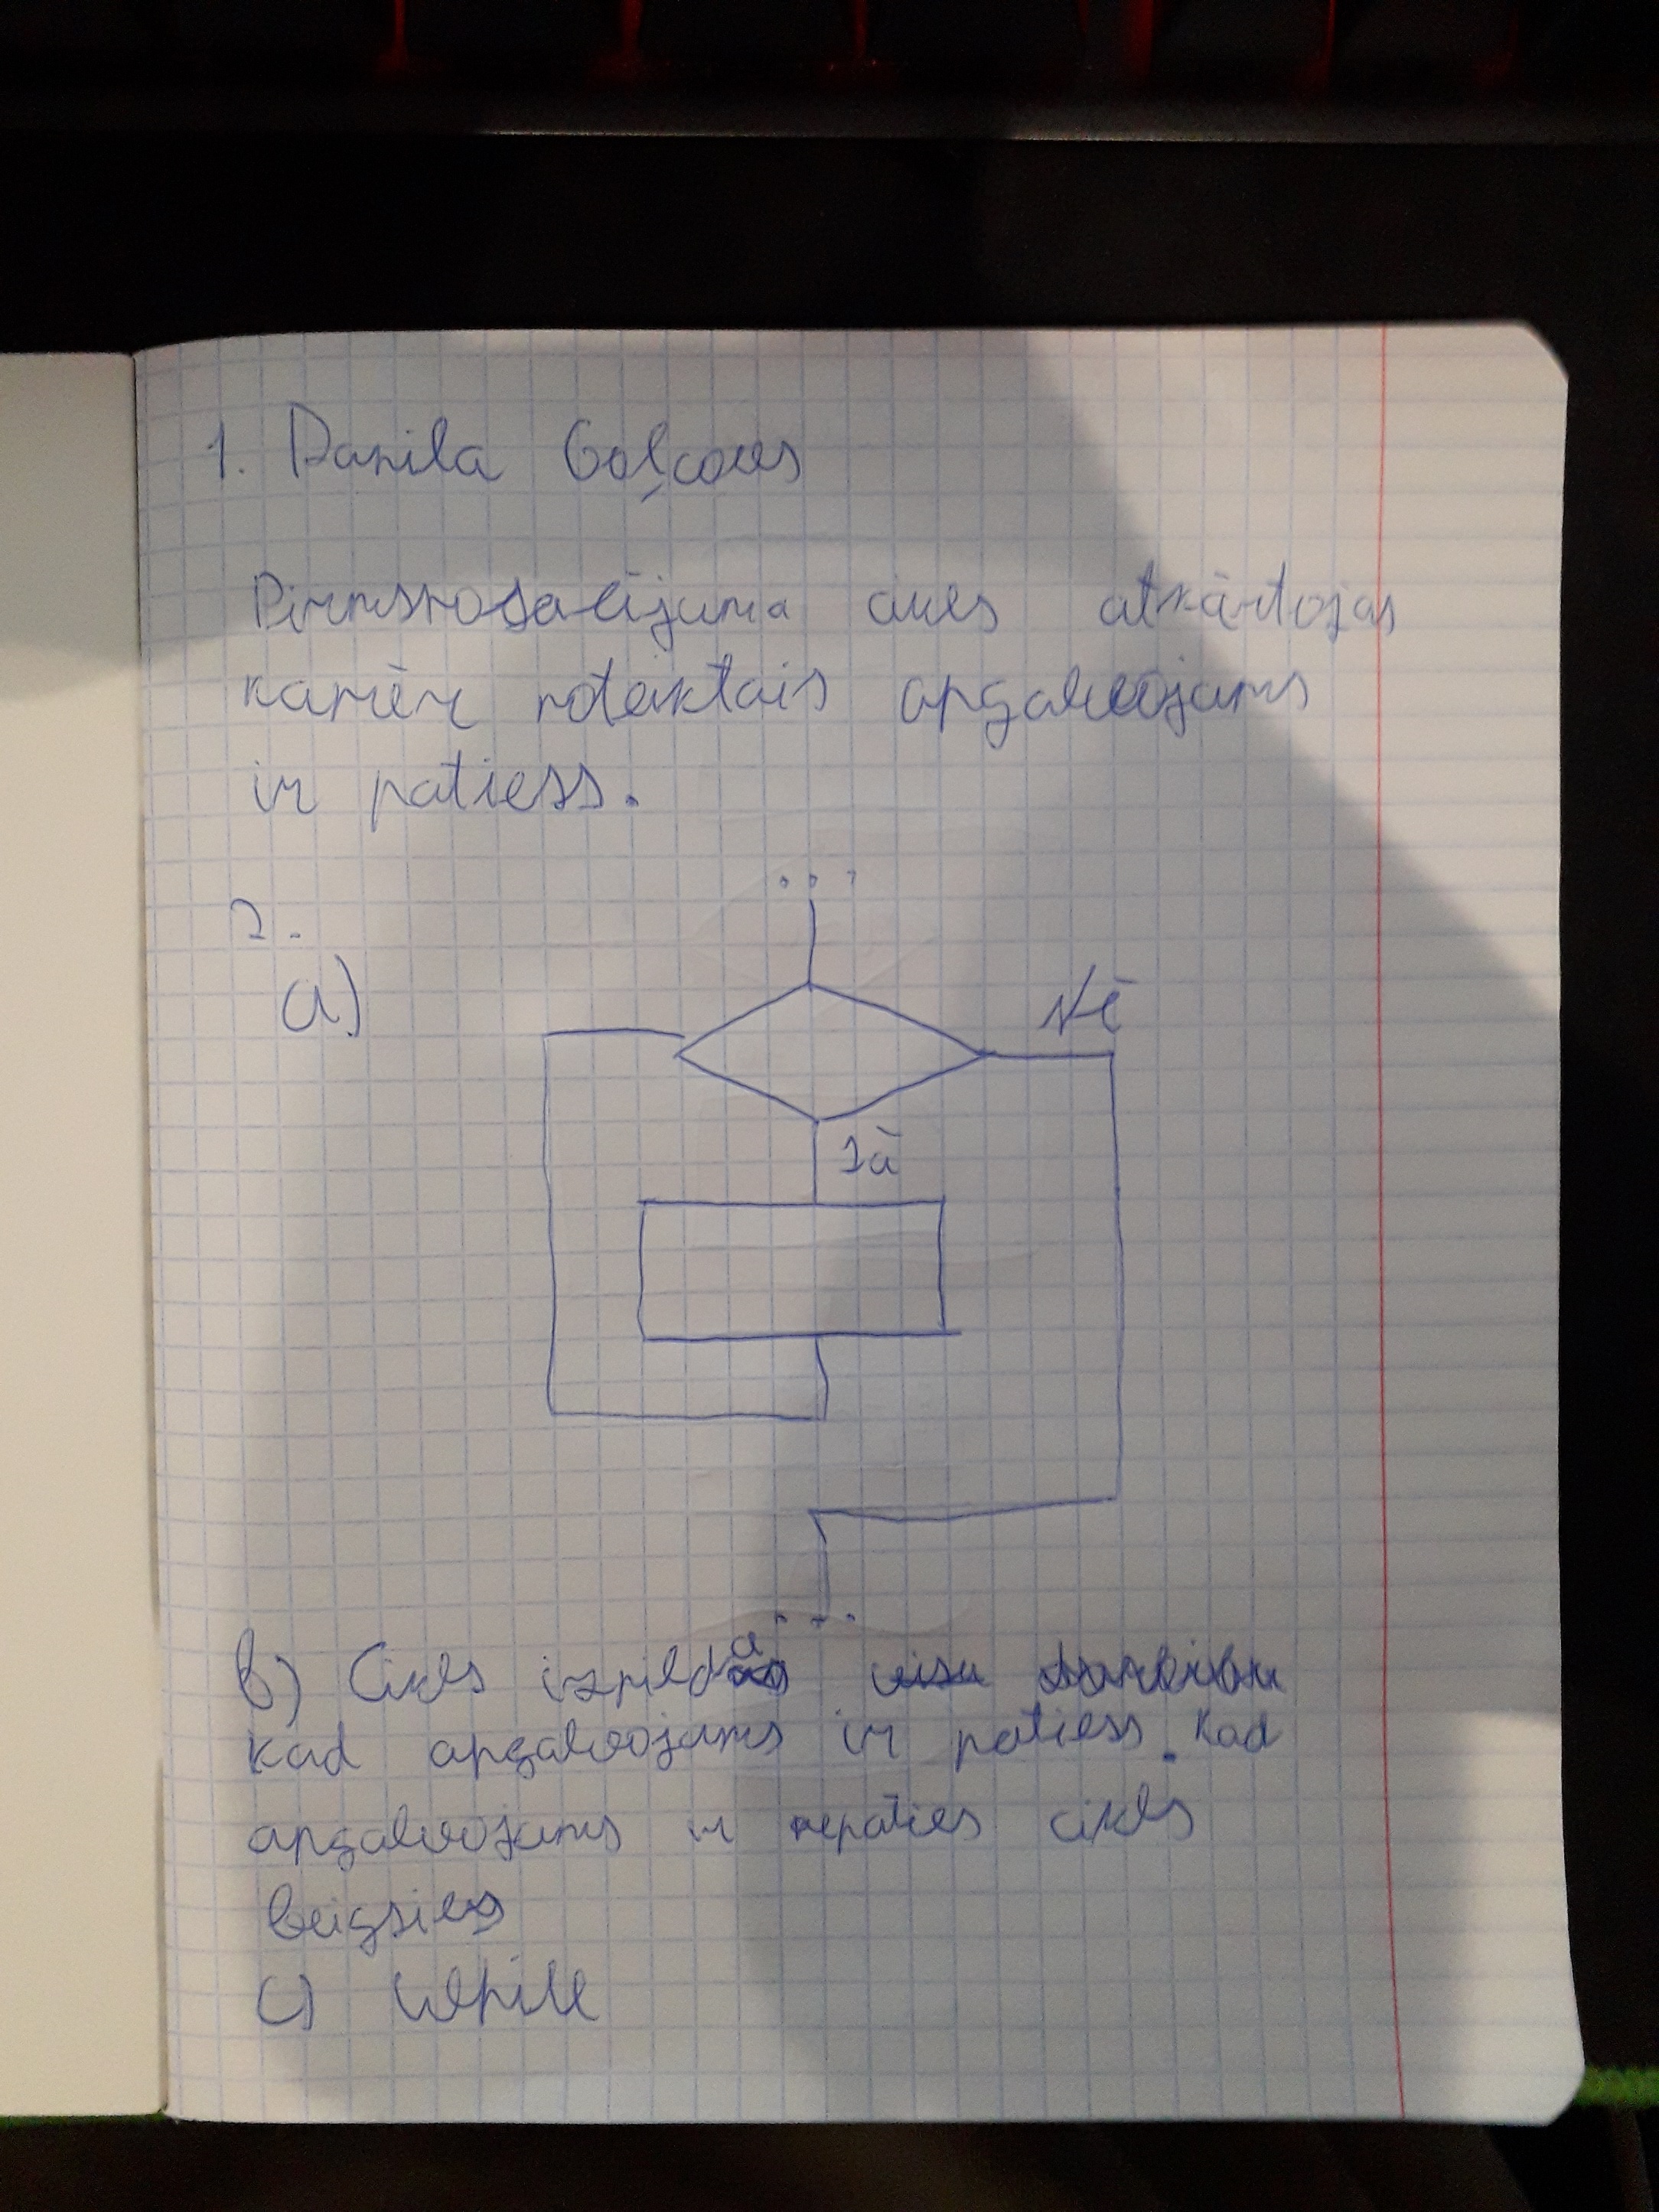 1. Danila Goļcovs
Pirmsnosacījuma cikls atkārtojas
kamēr noteiktais apgalvojums
ir patiess.
...
2.
a)
Nē
Jā
...
b) Cikls izpilda
kad apgalvojums ir patiess. Kad
apgalvojums ir nepaties cikls
beigsies
c) While